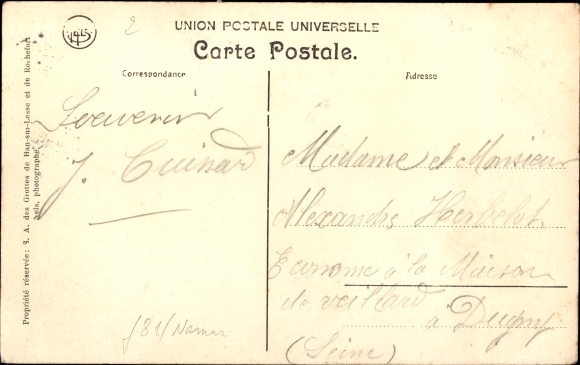 2
UNION POSTALE UNIVERSELLE
Carte Postale.
Correspondance
Adresse
Propriété réservée: S. A. des Grottes de Han-sur-Lesse et de Rochefort
Nels, photographe.
Souvenir
J. Cuisard
Madame et Monsieur
Alexandre Herbelot
Econome à la Maison
de veillard
à Dugny
(Seine)
f 81/Namur